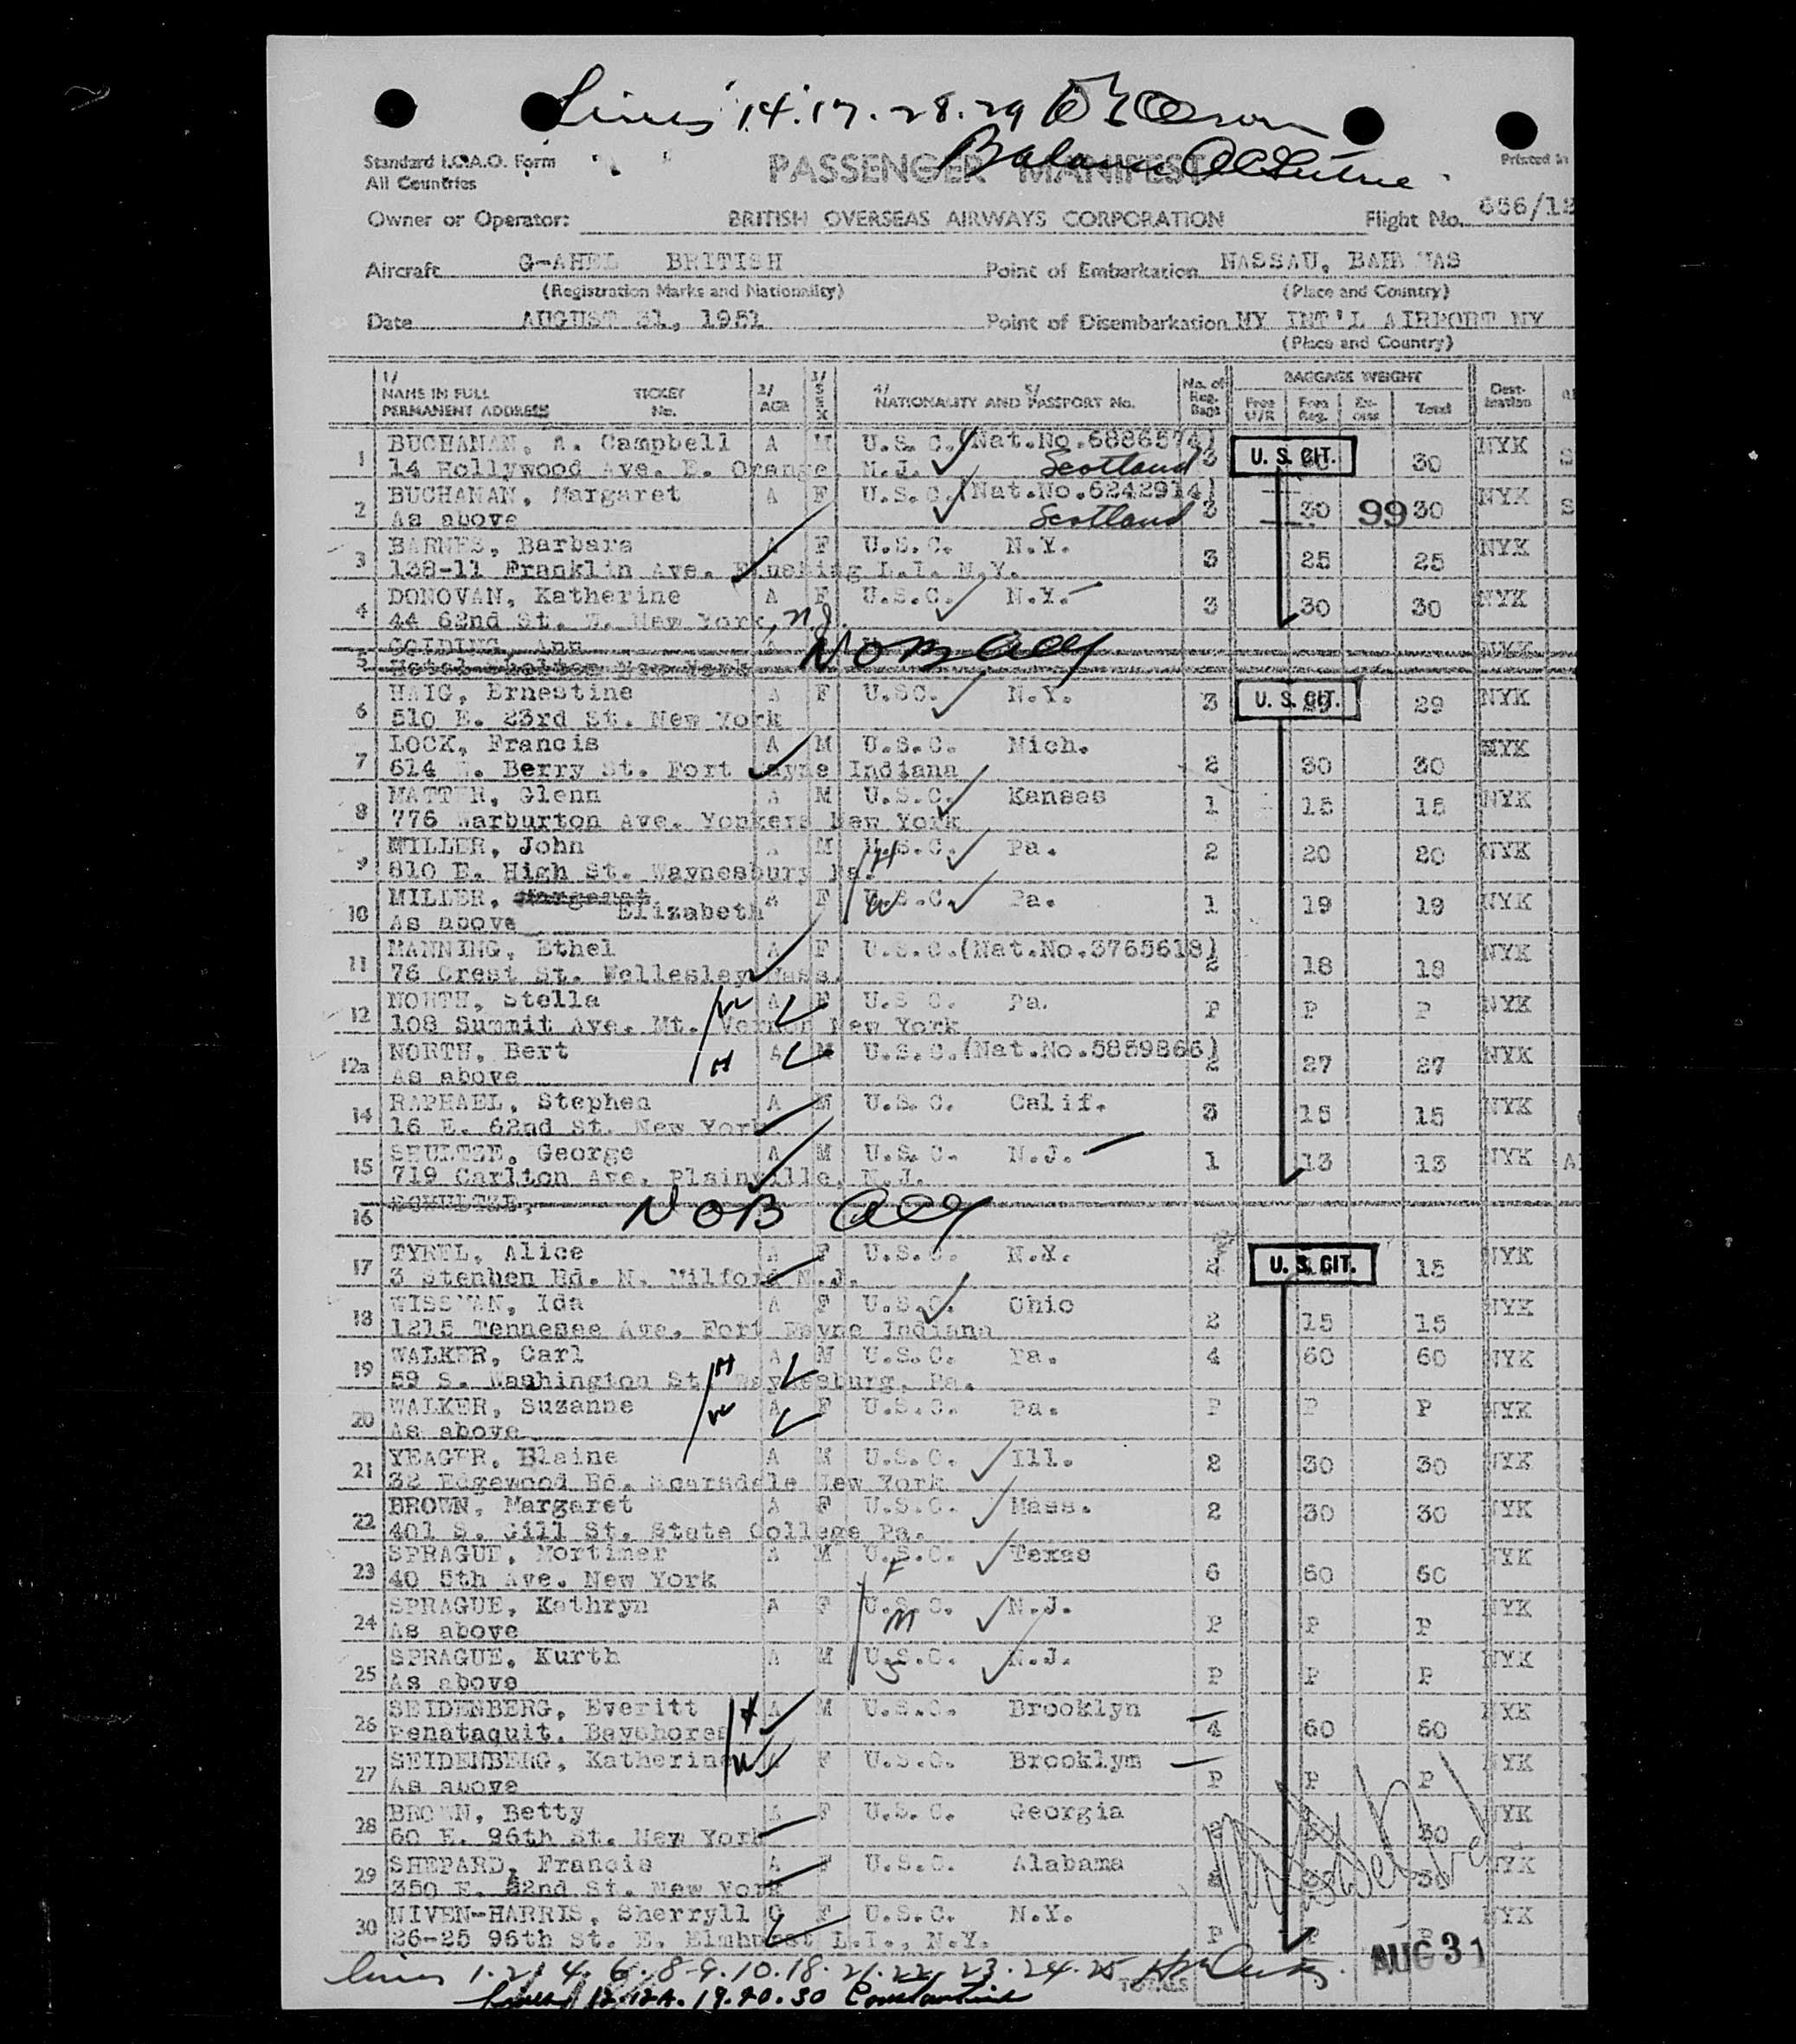 Lines 14. 17. 28. 29
Balance
Standard I.C.A.O. Form
All Countries
PASSENGER MANIFEST
Printed in
Owner or Operator: BRITISH OVERSEAS AIRWAYS CORPORATION Flight No. 656/12
Aircraft BRITISH Point of Embarkation NASSAU, BAHAMAS
(Registration Marks and Nationality) (Place and Country)
Date AUGUST 31, 1951 Point of Disembarkation NY INT'L AIRPORT NY
(Place and Country)
1/ NAME IN FULL PERMANENT ADDRESS TICKET No. 2/ AGE 3/ SEX 4/ 5/ NATIONALITY AND PASSPORT No. No. of Reg. Bags BAGGAGE WEIGHT Free Reg. Total Destination
1 BUCHANAN, A. Campbell A M U.S.C. (Nat.No.6886574) 3 U. S. CIT. 30 NYK
14 Hollywood Ave. E. Orange N.J. Scotland
2 BUCHANAN, Margaret A F U.S.C. (Nat.No.6242914) 3 30 99 30 NYK
As above Scotland
3 BARNES, Barbara A F U.S.C. N.Y. 3 25 25 NYK
138-11 Franklin Ave. Flushing L.I. N.Y.
4 DONOVAN, Katherine A F U.S.C. N.Y. 3 30 30 NYK
44 62nd St. W. New York, N.J.
5 GOLDING, Ann NOB NYK
Hotel Shelton New York
6 HAIG, Ernestine A F U.SC. N.Y. 3 U. S. CIT. 29 NYK
510 E. 23rd St. New York
7 LOCK, Francis A M U.S.C. Mich. 2 30 30 NYK
614 W. Berry St. Fort Wayne Indiana
8 MATTER, Glenn A M U.S.C. Kansas 1 15 15 NYK
776 Warburton Ave. Yonkers New York
9 MILLER, John A M U.S.C. Pa. 2 20 20 NYK
810 E. High St. Waynesburg Pa. H
10 MILLER, Margaret Elizabeth A F U.S.C. Pa. 1 19 19 NYK
As above W
11 MANNING, Ethel A F U.S.C. (Nat.No.3765618) 2 18 18 NYK
76 Crest St. Wellesley Mass.
12 NORTH, Stella W A F U.S C. Pa. P P P NYK
108 Summit Ave. Mt. Vernon New York
12a NORTH, Bert H A M U.S.C. (Nat.No.5859866) 2 27 27 NYK
As above
14 RAPHAEL, Stephen A M U.S.C. Calif. 3 15 15 NYK
16 E. 62nd St. New York
15 George A M U.S.C. N.J. 1 13 13 NYK A
719 Carlton Ave. Plainville, N.J.
16 SCHULTZE, NOB
17 Alice A F U.S.C. N.Y. 2 U. S. CIT. 15 NYK
3 Stephen Rd. N. Milford N.J.
18 WISSMAN, Ida A F U.S.C. Ohio 2 15 15 NYK
1215 Tennesee Ave. Fort Wayne Indiana
19 WALKER, Carl H A M U.S.C. Pa. 4 60 60 NYK
59 S. Washington St. Waynesburg, Pa.
20 WALKER, Suzanne W A F U.S.C. Pa. P P P NYK
As above
21 YEAGER, Blaine A M U.S.C. Ill. 2 30 30 NYK
32 Edgewood Rd. Scarsdale New York
22 BROWN, Margaret A F U.S.C. Mass. 2 30 30 NYK
401 S. Gill St. State College Pa.
23 SPRAGUE, Mortimer A M U.S.C. Texas 6 60 60 NYK
40 5th Ave. New York F
24 SPRAGUE, Kathryn A F U.S.C. N.J. P P P NYK
As above M
25 SPRAGUE, Kurth A M U.S.C. N.J. P P P NYK
As above S
26 SEIDENBERG, Everitt H A M U.S.C. Brooklyn 4 60 60 NYK
Penataquit. Bayshores
27 SEIDENBERG, Katherine W A F U.S.C. Brooklyn P P P NYK
As above
28 BROWN, Betty A F U.S.C. Georgia 30 NYK
60 E. 96th St. New York
29 SHEPARD, Francis A F U.S.C. Alabama 30 NYK
350 E. 52nd St. New York
30 NIVEN-HARRIS, Sherryll C F U.S.C. N.Y. P P P NYK
26-25 96th St. E. Elmhurst L.I., N.Y.
AUG 31
lines 1. 2. 4. 6. 8-9. 10. 18. 21. 22. 23. 24. 25
TOTALS
Lines 12. 12A. 19. 20. 30 Constantine